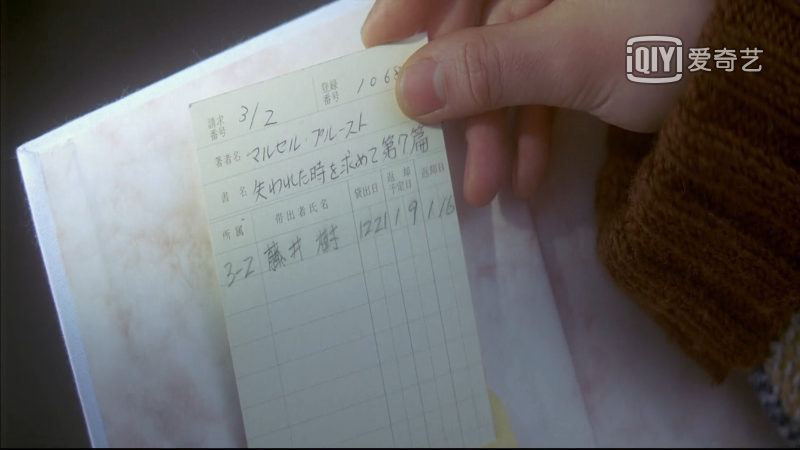 QIY 爱奇艺
請求番号 3/2 登録番号 106
著者名 マルセル・プルースト
書名 失われた時を求めて第7篇
所属 帯出者氏名 貸出日 返却予定日 返却日
3-2 藤井樹 1221 1 9 1 16